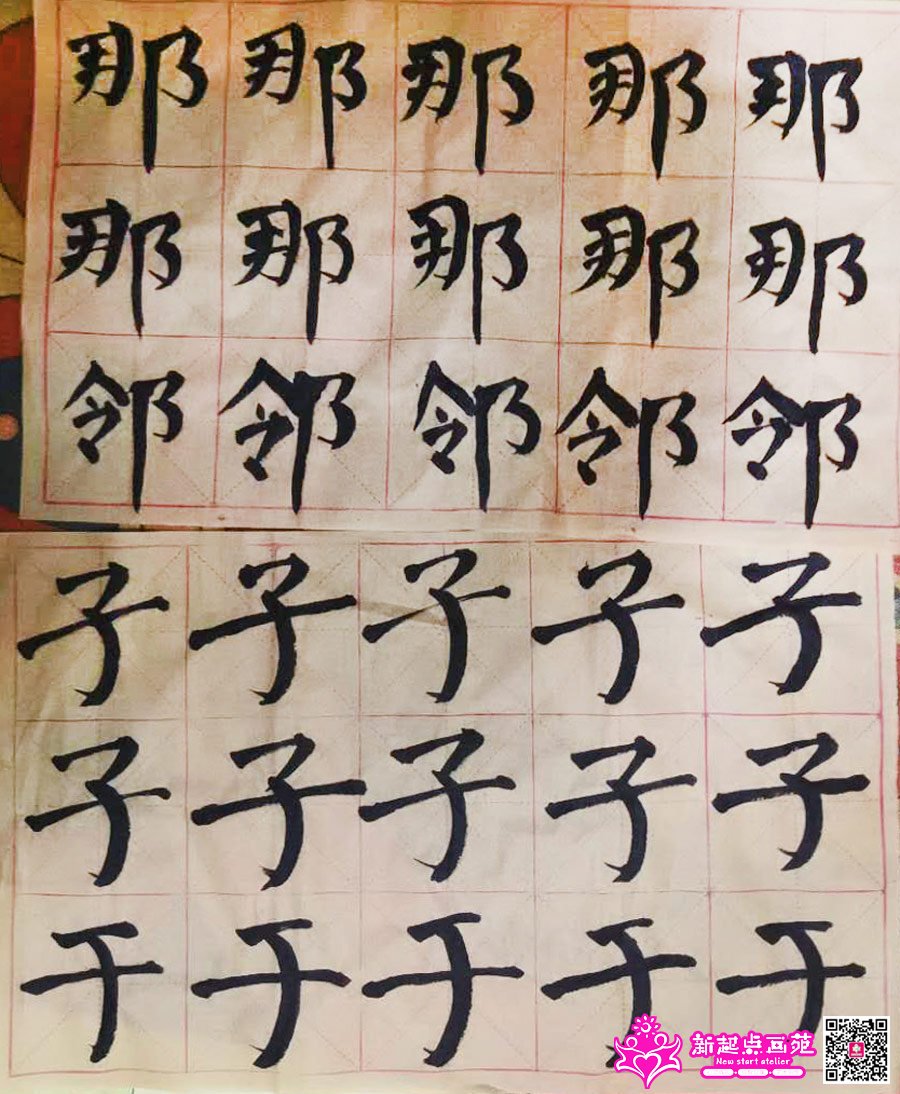 那那那那那
那那那那那
邻邻邻邻邻
子子子子子
子子子子子
于于于于于
新起点画苑
New start atelier